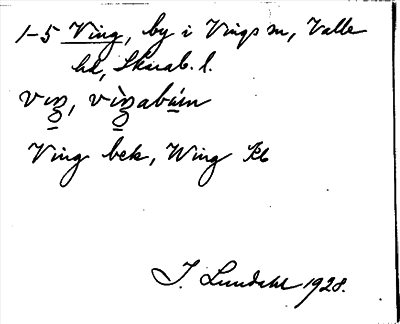 1-5 Ving, by i Vings sn, Valle
hd, Skarab. l.
vıŋ, vìŋabá̱ın
Ving bek, Wing Kb
I. Lundahl 1928.